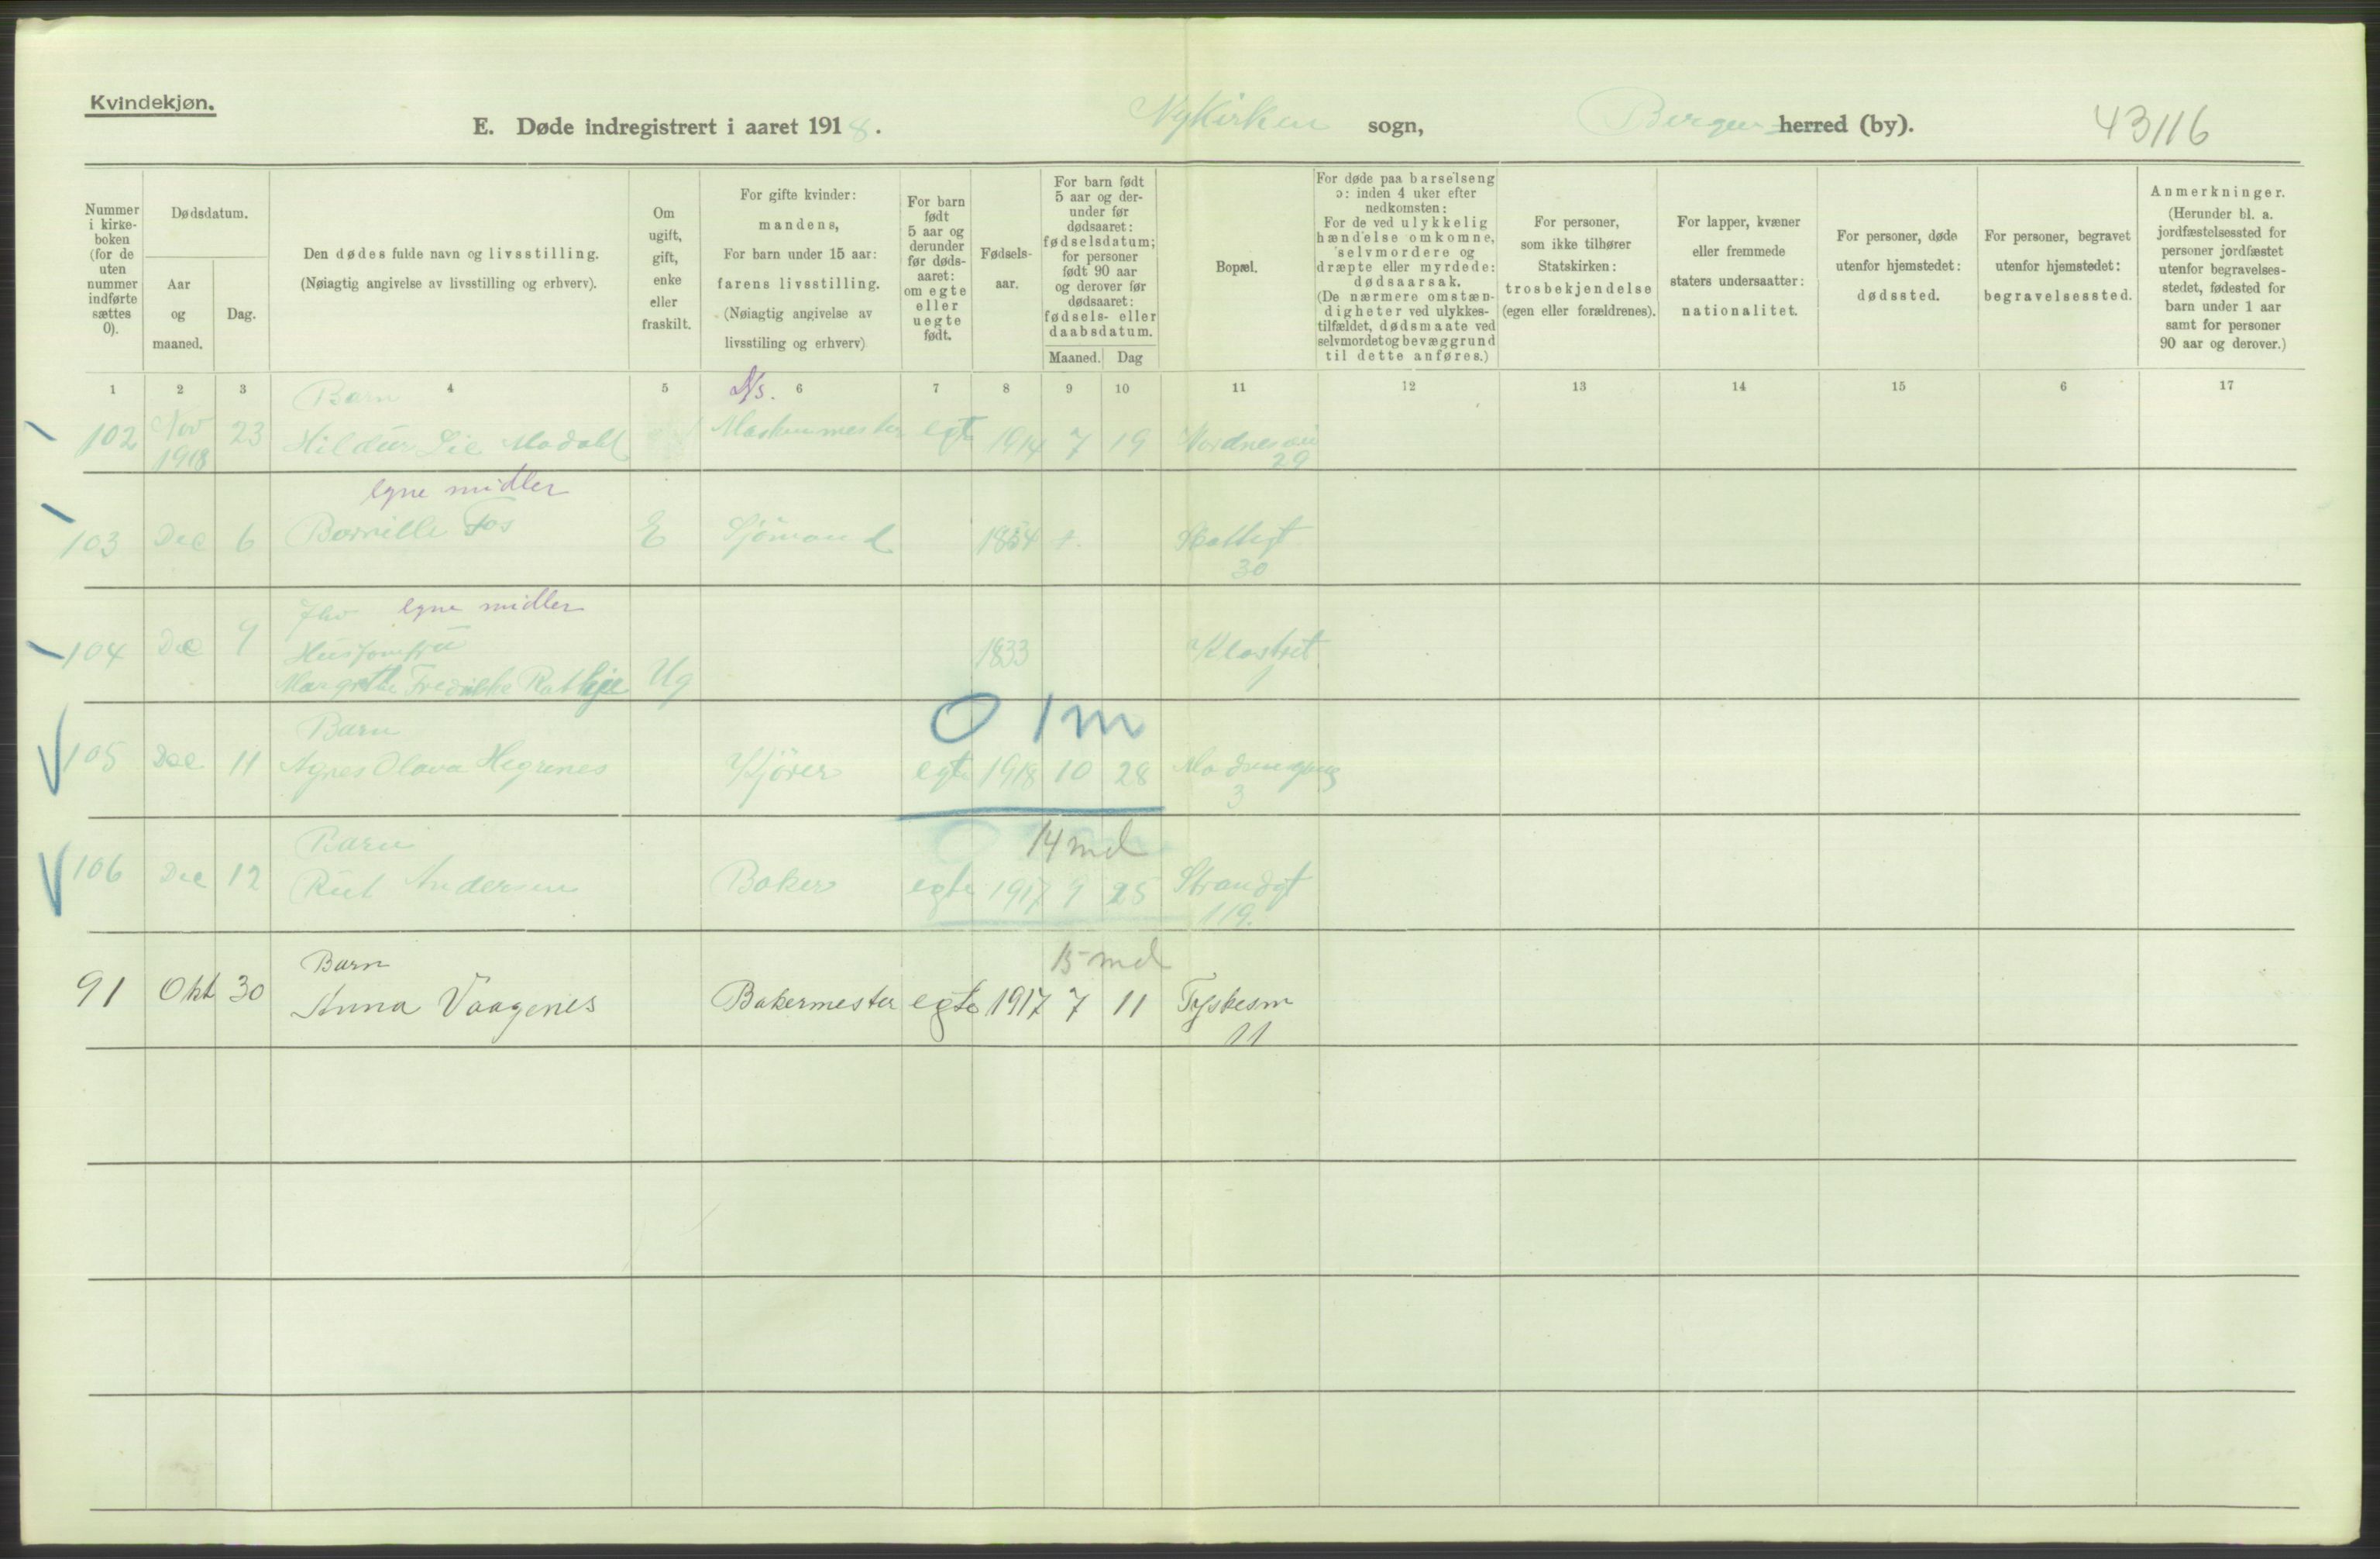 Kvindekjøn.
E. Døde indregistrert i aaret 1918. Nykirken sogn, Bergen herred (by). 43116
Nummer i kirke-boken (for de uten nummer indførte sættes 0).
Dødsdatum.
Aar og maaned.
Dag.
Den dødes fulde navn og livsstilling.
(Nøiagtig angivelse av livsstilling og erhverv).
Om ugift, gift, enke eller fraskilt.
For gifte kvinder: mandens,
For barn under 15 aar: farens livsstilling.
(Nøiagtig angivelse av livsstiling og erhverv)
For barn født 5 aar og derunder før døds-aaret: om egte eller uegte født.
Fødsels-aar.
For barn født 5 aar og der-under før dødsaaret: fødselsdatum; for personer født 90 aar og derover før dødsaaret: fødsels- eller daabsdatum.
Maaned. Dag
Bopæl.
For døde paa barselseng ɔ: inden 4 uker efter nedkomsten:
For de ved ulykkelig hændelse omkomne, selvmordere og dræpte eller myrdede: dødsaarsak.
(De nærmere omstæn-digheter ved ulykkes-tilfældet, dødsmaate ved selvmordet og bevæggrund til dette anføres.)
For personer, som ikke tilhører Statskirken: trosbekjendelse (egen eller forældrenes).
For lapper, kvæner eller fremmede staters undersaatter: nationalitet.
For personer, døde utenfor hjemstedet: dødssted.
For personer, begravet utenfor hjemstedet: begravelsessted.
Anmerkninger.
(Herunder bl. a. jordfæstelsessted for personer jordfæstet utenfor begravelses-stedet, fødested for barn under 1 aar samt for personer 90 aar og derover.)
1 2 3 4 5 6 7 8 9 10 11 12 13 14 15 6 17
Barn
102 Nov 1918 23 Hildur Lie egte 1914 7 19 29
egne midler
103 Dec 6 Fos E Sjömand 1854 30
egne midler
Husjomfru
104 Dec 9 Margrethe Fredrikke Rathje Ug 1833 Klostret
0 1 m
Barn
105 Dec 11 Agnes Olava Hegrenes Kjörer egte 1918 10 28 3
14 md
Barn
106 Dec 12 Rut Andersen Baker egte 1917 9 25 Strandgt 119.
15 md
Barn
91 Okt 30 Anna Vaagenes Bakermester egte 1917 7 11 Tyskesm 11